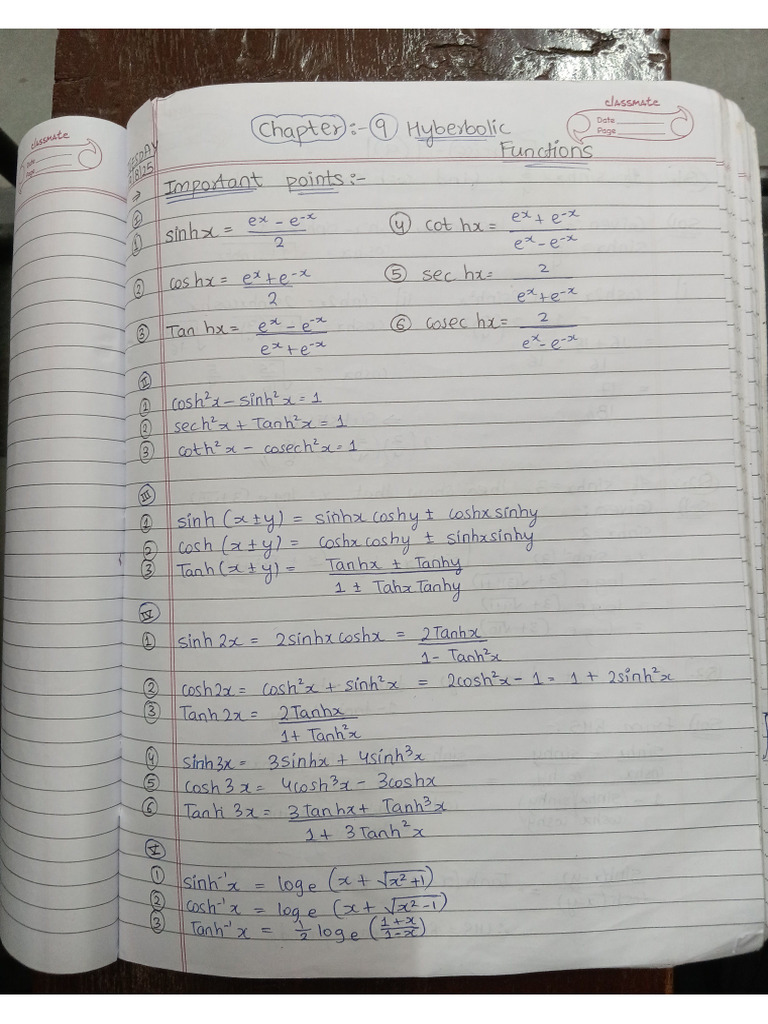 classmate
Date
Page
classmate
Date
Page
Chapter :- 9 Hyberbolic
Functions
⇒ Important points :-
I
① sinhx = (e^x - e^-x)/2
④ cot hx = (e^x + e^-x)/(e^x - e^-x)
② cos hx = (e^x + e^-x)/2
⑤ sec hx = 2/(e^x + e^-x)
③ Tan hx = (e^x - e^-x)/(e^x + e^-x)
⑥ cosec hx = 2/(e^x - e^-x)
II
① cosh²x - sinh²x = 1
② sech²x + Tanh²x = 1
③ coth²x - cosech²x = 1
III
① sinh (x ± y) = sinhx coshy ± coshx sinhy
② cosh (x ± y) = coshx coshy ± sinhx sinhy
③ Tanh (x ± y) = (Tanhx ± Tanhy)/(1 ± TahxTanhy)
IV
① sinh 2x = 2sinhx coshx = 2Tanhx/(1 - Tanh²x)
② cosh2x = cosh²x + sinh²x = 2cosh²x - 1 = 1 + 2sinh²x
③ Tanh 2x = 2Tanhx/(1 + Tanh²x)
④ sinh3x = 3sinhx + 4sinh³x
⑤ cosh 3x = 4cosh³x - 3coshx
⑥ Tanh 3x = (3tanhx + Tanh³x)/(1 + 3Tanh²x)
V
① sinh⁻¹x = loge (x + √(x²+1))
② cosh⁻¹x = loge (x + √(x²-1))
③ Tanh⁻¹x = 1/2 loge ((1+x)/(1-x))